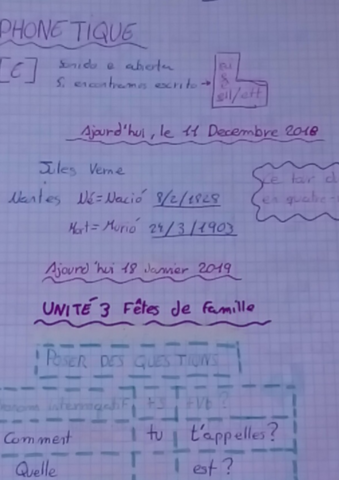 PHONETIQUE
[ɛ] sonido e abierta
Si encontramos escrito →
Ajourd'hui, le 11 Decembre 2018
Jules Verne
Nantes Né = Nació 8/2/1828
Mort = Murió 24/3/1903
Le tour d
en quatre-
Ajourd'hui 18 Janvier 2019
UNITÉ 3 Fêtes de famille
POSER DES QUESTIONS
+S +Vb ?
Comment tu t'appelles?
Quelle est?